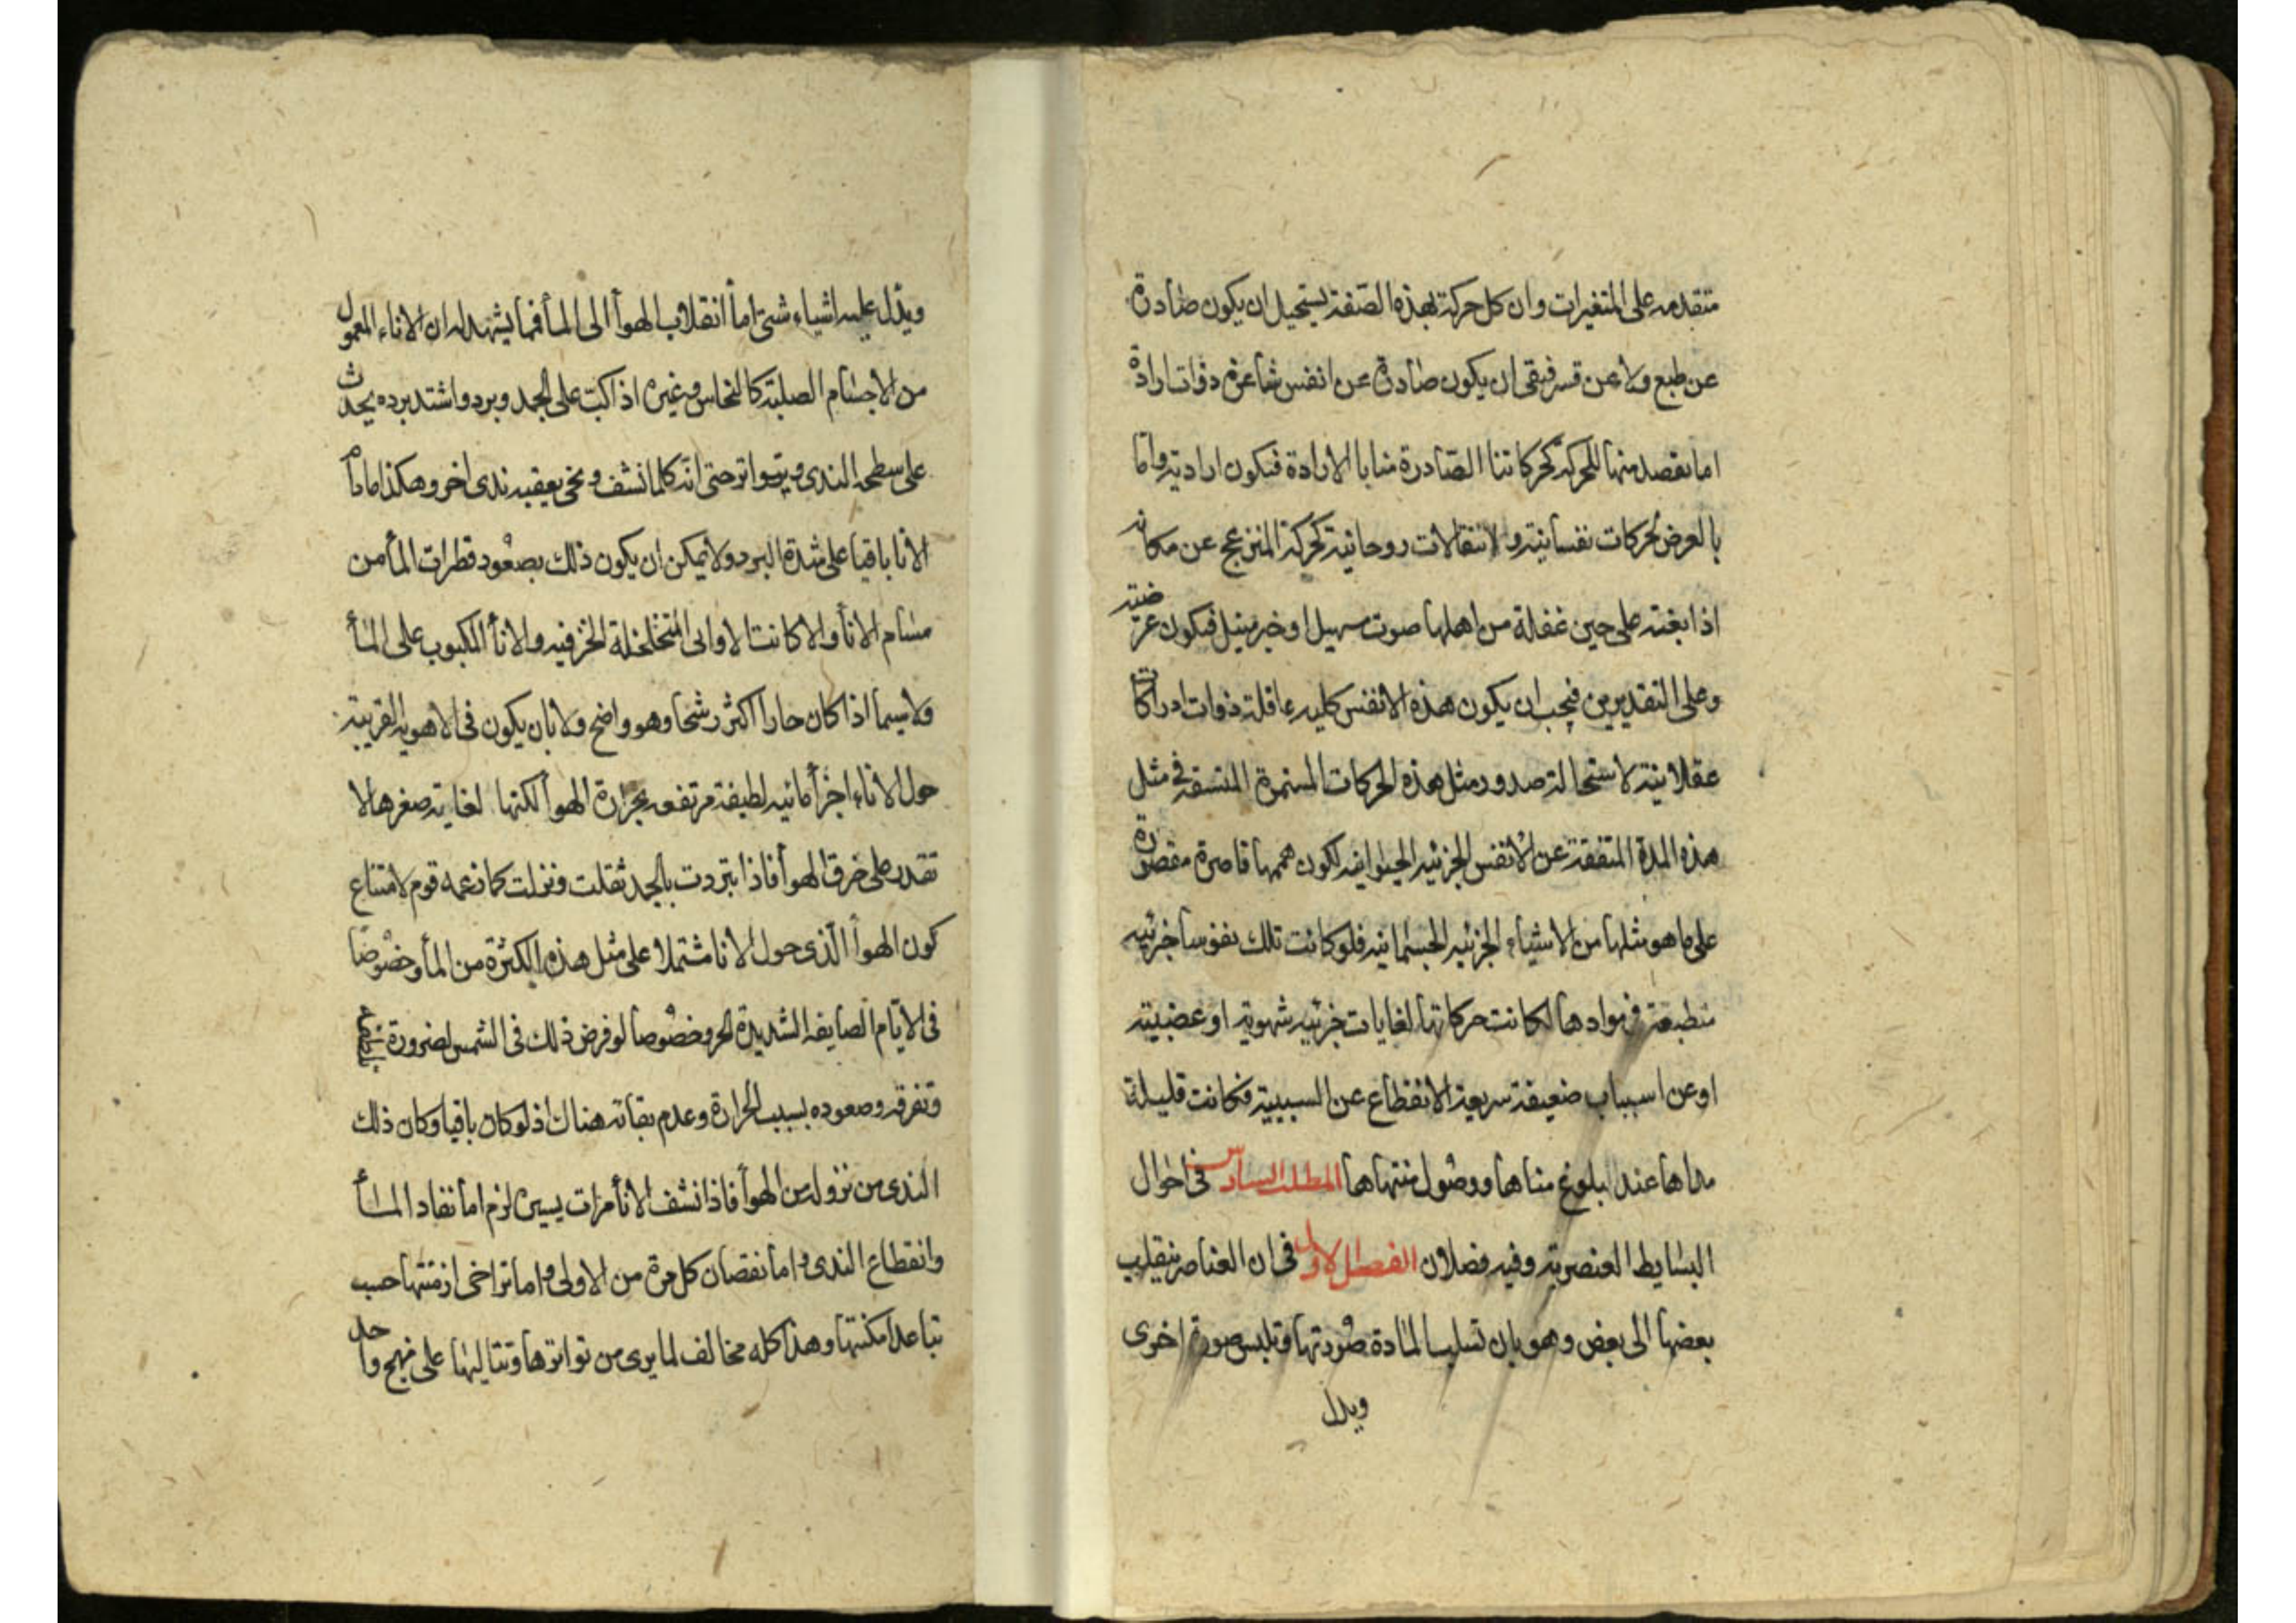 متقدمه على المتغيرات وان كل حركة بهذه الصفة يستحيل ان يكون صادرة
عن طبع ولا عن قسر فبقى ان يكون صادرة عن انفس شاعرة ذوات ارادة
اما بقصد منها للحركة كحركاتنا الصادرة منا بالارادة فتكون ارادية واما
بالعرض كحركات نفسانية ولانتقالات روحانية كحركة المنزعج عن مكانه
اذا بغته على حين غفلة من اهلها صوت سهيل او خبر منيل فتكون عرضية
وعلى التقديرين فيجب ان يكون هذه الانفس كليه عاقلة ذوات ادراكات
عقلانية لاستحالة صدور مثل هذه الحركات المستمرة المتسقة في مثل
هذه المدة المتفقة عن الانفس الجزئيه الحيوانيه لكون هممها قاصرة مقصورة
على ما هو مثلها من الاشياء الجزئيه الجسمانيه فلو كانت تلك نفوسا جزئيه
منطبعة في موادها لكانت حركاتها لغايات جزئيه شهوية او غضبية
او عن اسباب ضعيفة سريعة الانقطاع عن السببية فكانت قليلة
مداها عند بلوغ مناها ووصول منتهاها المطلب السادس في احوال
البسايط العنصرية وفيه فصلان الفصل الاول في ان العناصر ينقلب
بعضها الى بعض وهو بان تسلب المادة صورتها وتلبس صورة اخرى
ويدل
ويدل عليه اشياء شتى اما انقلاب الهوأ الى المأ فمما يشهد له ان الاناء المعمول
من الاجسام الصلبة كالنحاس وغيره اذا كبت على الجمد وبرد واشتد برده يحدث
على سطحه الندى ويتواتر حتى انه كلما نشف ونحى يعقبه ندى اخر وهكذا مادام
الانا باقيا على شدة البرد ولا يمكن ان يكون ذلك بصعود قطرات المأ من
مسام الانأ والا كانت الاوانى المتخلخلة الخزفيه والانأ المكبوب على المأ
ولا سيما اذا كان حارا اكثر رشحا وهو واضح ولا بان يكون فى الاهويه القريبة
حول الاناء اجزأ مائيه لطيفة مرتفعه بحرارة الهوأ لكنها لغاية صغرها لا
تقدر على خرق الهوأ فاذا تبردت بالجمد ثقلت ونزلت كما زعمه قوم لامتناع
كون الهوأ الذى حول الانا مشتملا على مثل هذه الكثرة من المأ وخصوصا
فى الايام الصايفه الشديدة الحر وخصوصا لو فرض ذلك فى الشمس لضرورة
وتفرقه وصعوده بسبب الحرارة وعدم بقائه هناك اذ لو كان باقيا وكان ذلك
الندى من نزوله من الهوأ فاذا نشف الانأ مرات يسيرة لزم اما نفاد المأ
وانقطاع الندى واما نقصان كل مرة من الاولى واما تراخى ازمنتها حسب
تباعد امكنتها وهذا كله مخالف لما يرى من تواترها وتتاليها على نهج واحد